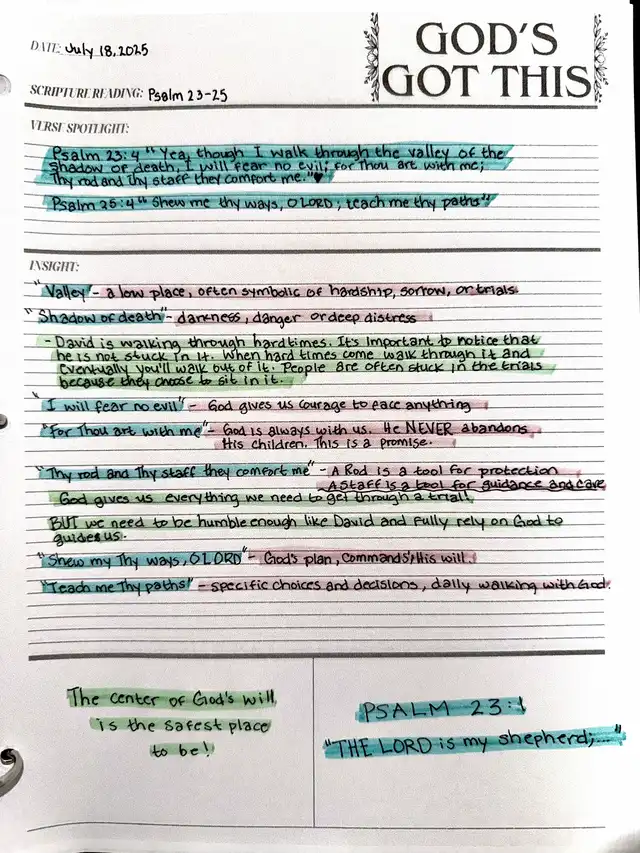 DATE: July 18, 2025
GOD'S
GOT THIS
SCRIPTURE READING: Psalm 23-25
VERSE SPOTLIGHT:
Psalm 23:4 "Yea, though I walk through the valley of the
shadow of death, I will fear no evil; for Thou art with me;
Thy rod and Thy staff they comfort me."♥
Psalm 25:4 "Shew me thy ways, O LORD; teach me thy paths"
INSIGHT:
"Valley" - a low place, often symbolic of hardship, sorrow, or trials.
"Shadow of death" - darkness, danger or deep distress
- David is walking through hard times. It's important to notice that
he is not stuck in it. When hard times come walk through it and
eventually you'll walk out of it. People are often stuck in the trials
because they choose to sit in it.
"I will fear no evil" - God gives us courage to face anything
"For Thou art with me" - God is always with us. He NEVER abandons
His children. This is a promise.
"Thy rod and Thy staff they comfort me" - A Rod is a tool for protection
- A Staff is a tool for guidance and care
God gives us everything we need to get through a trial!
BUT we need to be humble enough like David and fully rely on God to
guide us.
"Shew my Thy ways, O LORD" - God's plan, Commands, His will.
"Teach me Thy paths" - specific choices and decisions, daily walking with God.
The center of God's will
is the safest place
to be!
PSALM 23:1
"THE LORD is my shepherd;..."